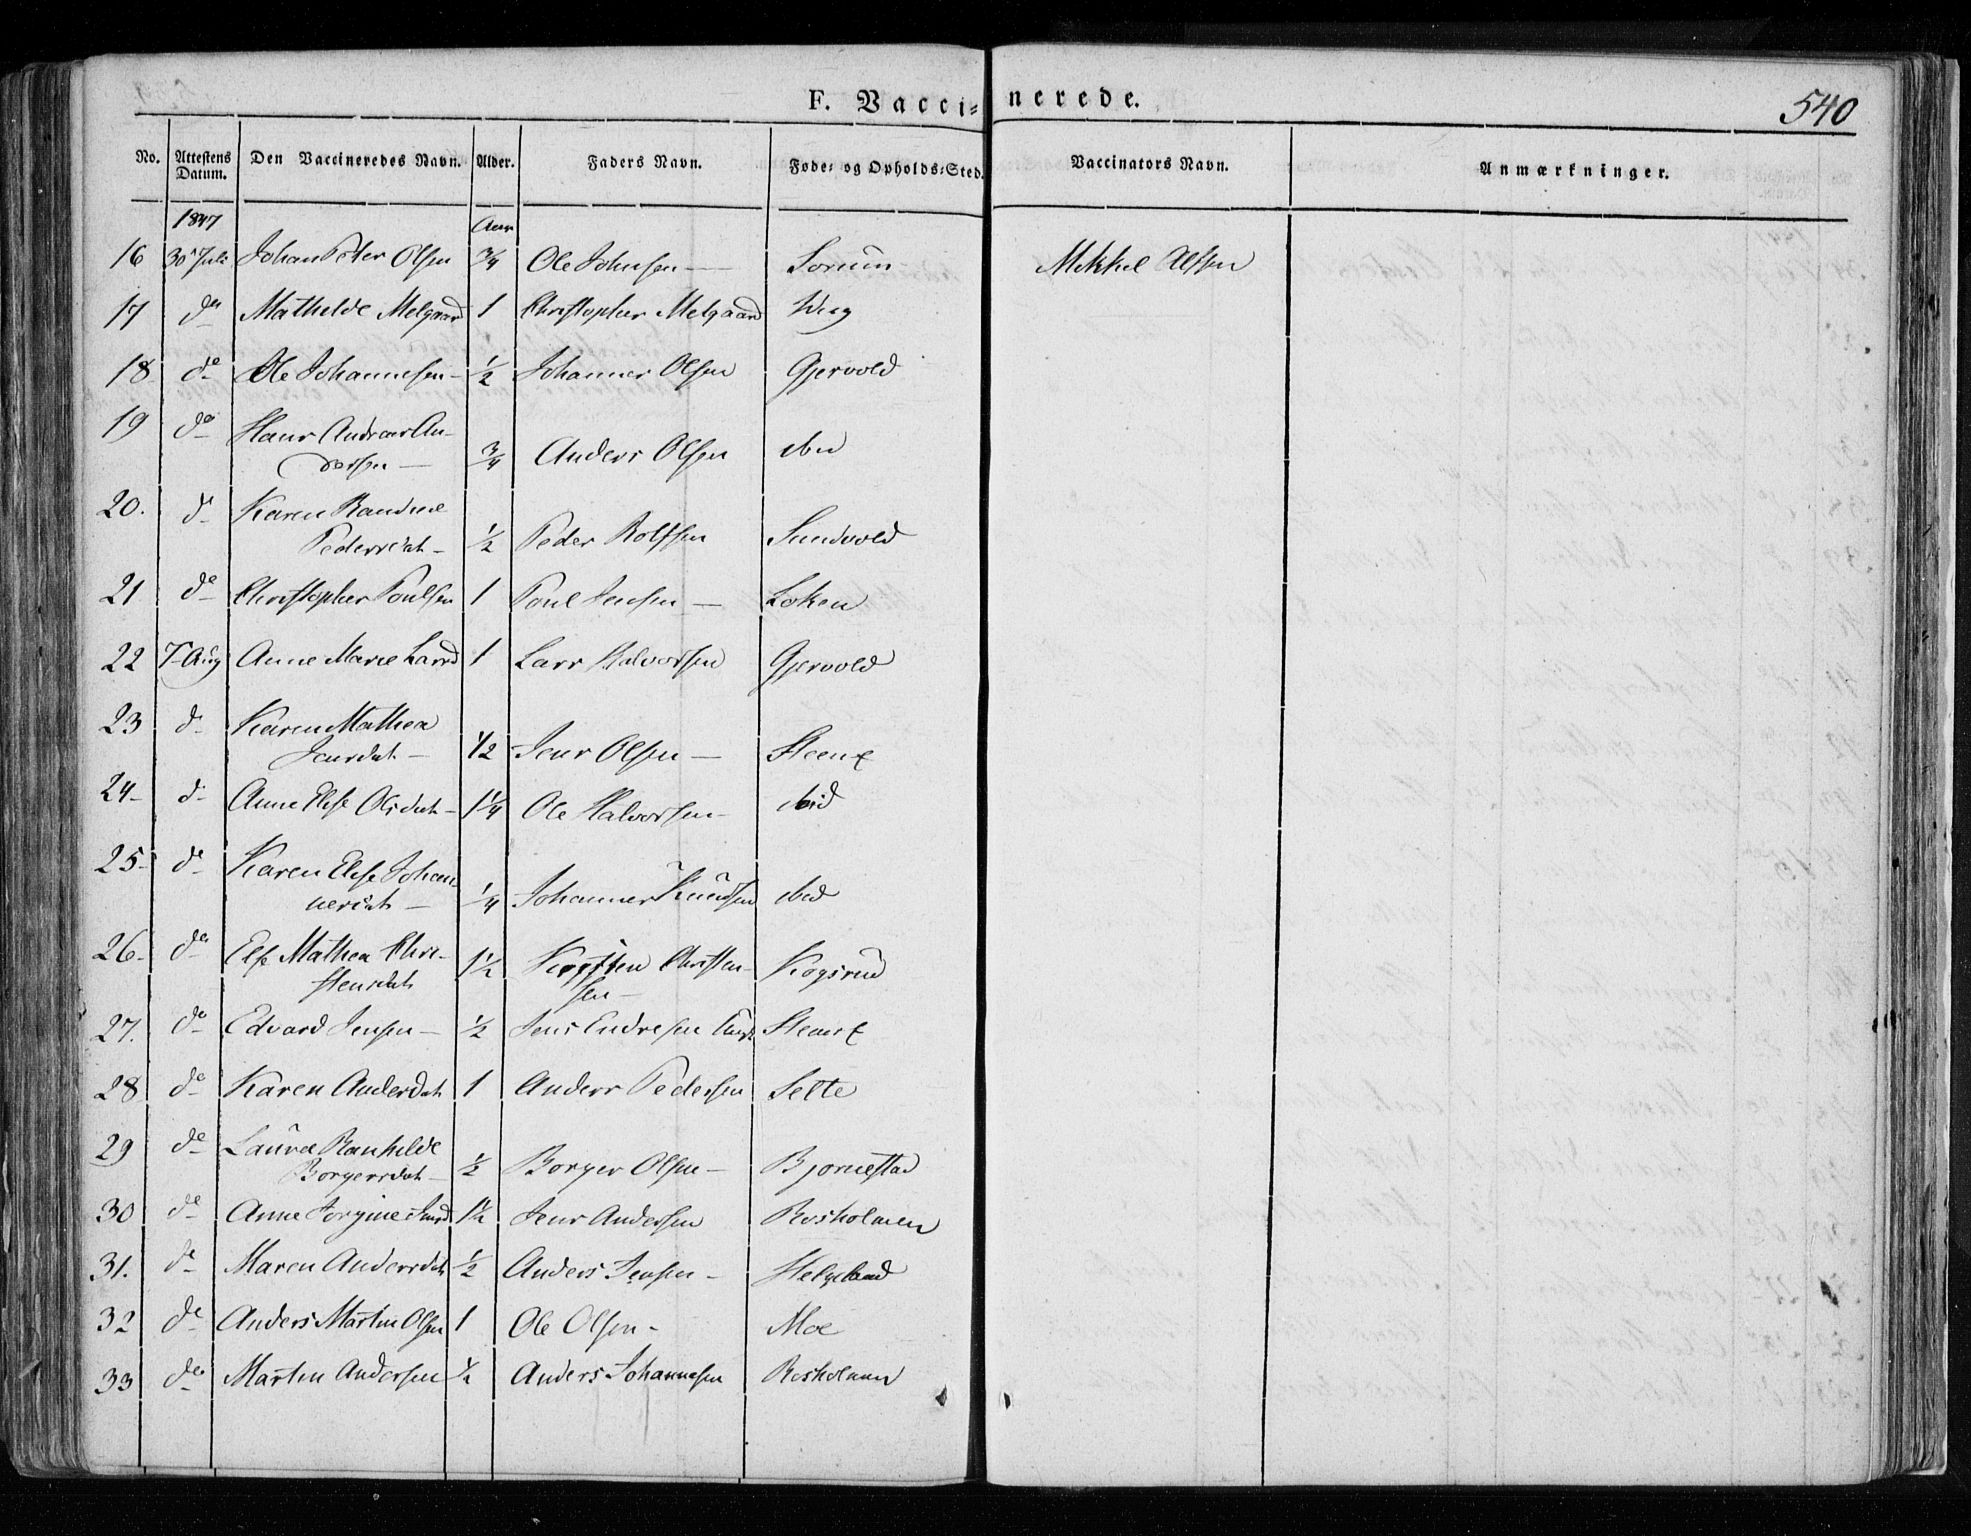 F. Vaccinerede.
540
No. Attestens Datum. Den Vaccineredes Navn. Alder. Faders Navn. Føde- og Opholds-Sted. Vaccinators Navn. Anmærkninger.
1847 Aar
16 30 Juli Johan Peter Olsen 3/4 Ole Johnsen — Sorum Mikkel Olsen
17 do Mathilde Melgaard 1 Christopher Melgaard
18 do Ole Johannesen — 1/2 Johannes Olsen Gjervold
19 do Hans Andreas An-
dersen — 3/4 Anders Olsen
20. do Karen Randine
Pedersdat — 1/2 Peder Rolfsen Sundvold
21 do Christopher Poulsen 1 Poul Jensen — Loken
22 7 Aug Anne Marie Larsd 1 Lars Halvorsen Gjervold
23 do Karen Mathea
Jensdat — 1/2 Jens Olsen —
24 — do Anne Else Olsdat — 1 1/4 Ole Halvorsen — ibid
25 — do Karen Else Johan-
nesdat — 1/4 Johannes Knudsen ibid
26 — do Else Mathea Chri-
stensdat 1 1/2 Christen-
sen — Kogsrud
27. do Edvard Jensen — 1/2 Jens Endresen
28 do Karen Andersdat 1 Anders Pedersen Sette
29 do Laura Ranhilde
Borgersdat — 1/2 Borger Olsen — Bjornestad
30 do Anne Jorgine Jensd 1 1/2 Jens Andersen Rosholmen
31. do Maren Andersdat 1/2 Anders Jensen — Helgeland
32 do Anders Martin Olsen 1 Ole Olsen — Moe
33 do Martin Andersen 1/2 Anders Johannesen Rosholmen